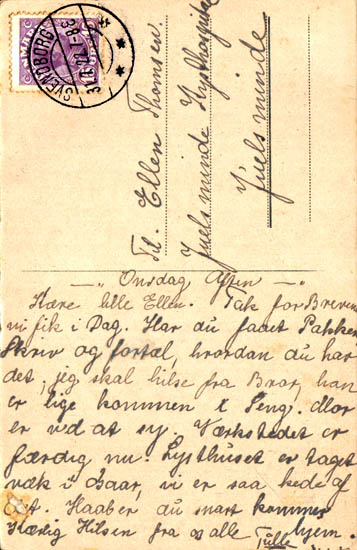 DANMARK
SVENDBORG
31.8.22. 7-8 E
Til Ellen Thomsen.
Juelsminde Kysthospital
Juelsminde
— „ — Onsdag Aften — „ —
Kære lille Ellen. Tak for Breven
vi fik i Dag. Har du faaet Pakken
Skriv og fortæl, hvordan du har
det, jeg skal hilse fra Bror, han
er lige kommen i Seng. Mor
er ved at sy. Værkstedet er
færdig nu. Lysthuset er taget
væk i Gaar, vi er saa kede af
det. Haaber du snart kommer
hjem.
Kærlig Hilsen fra os alle Tulle